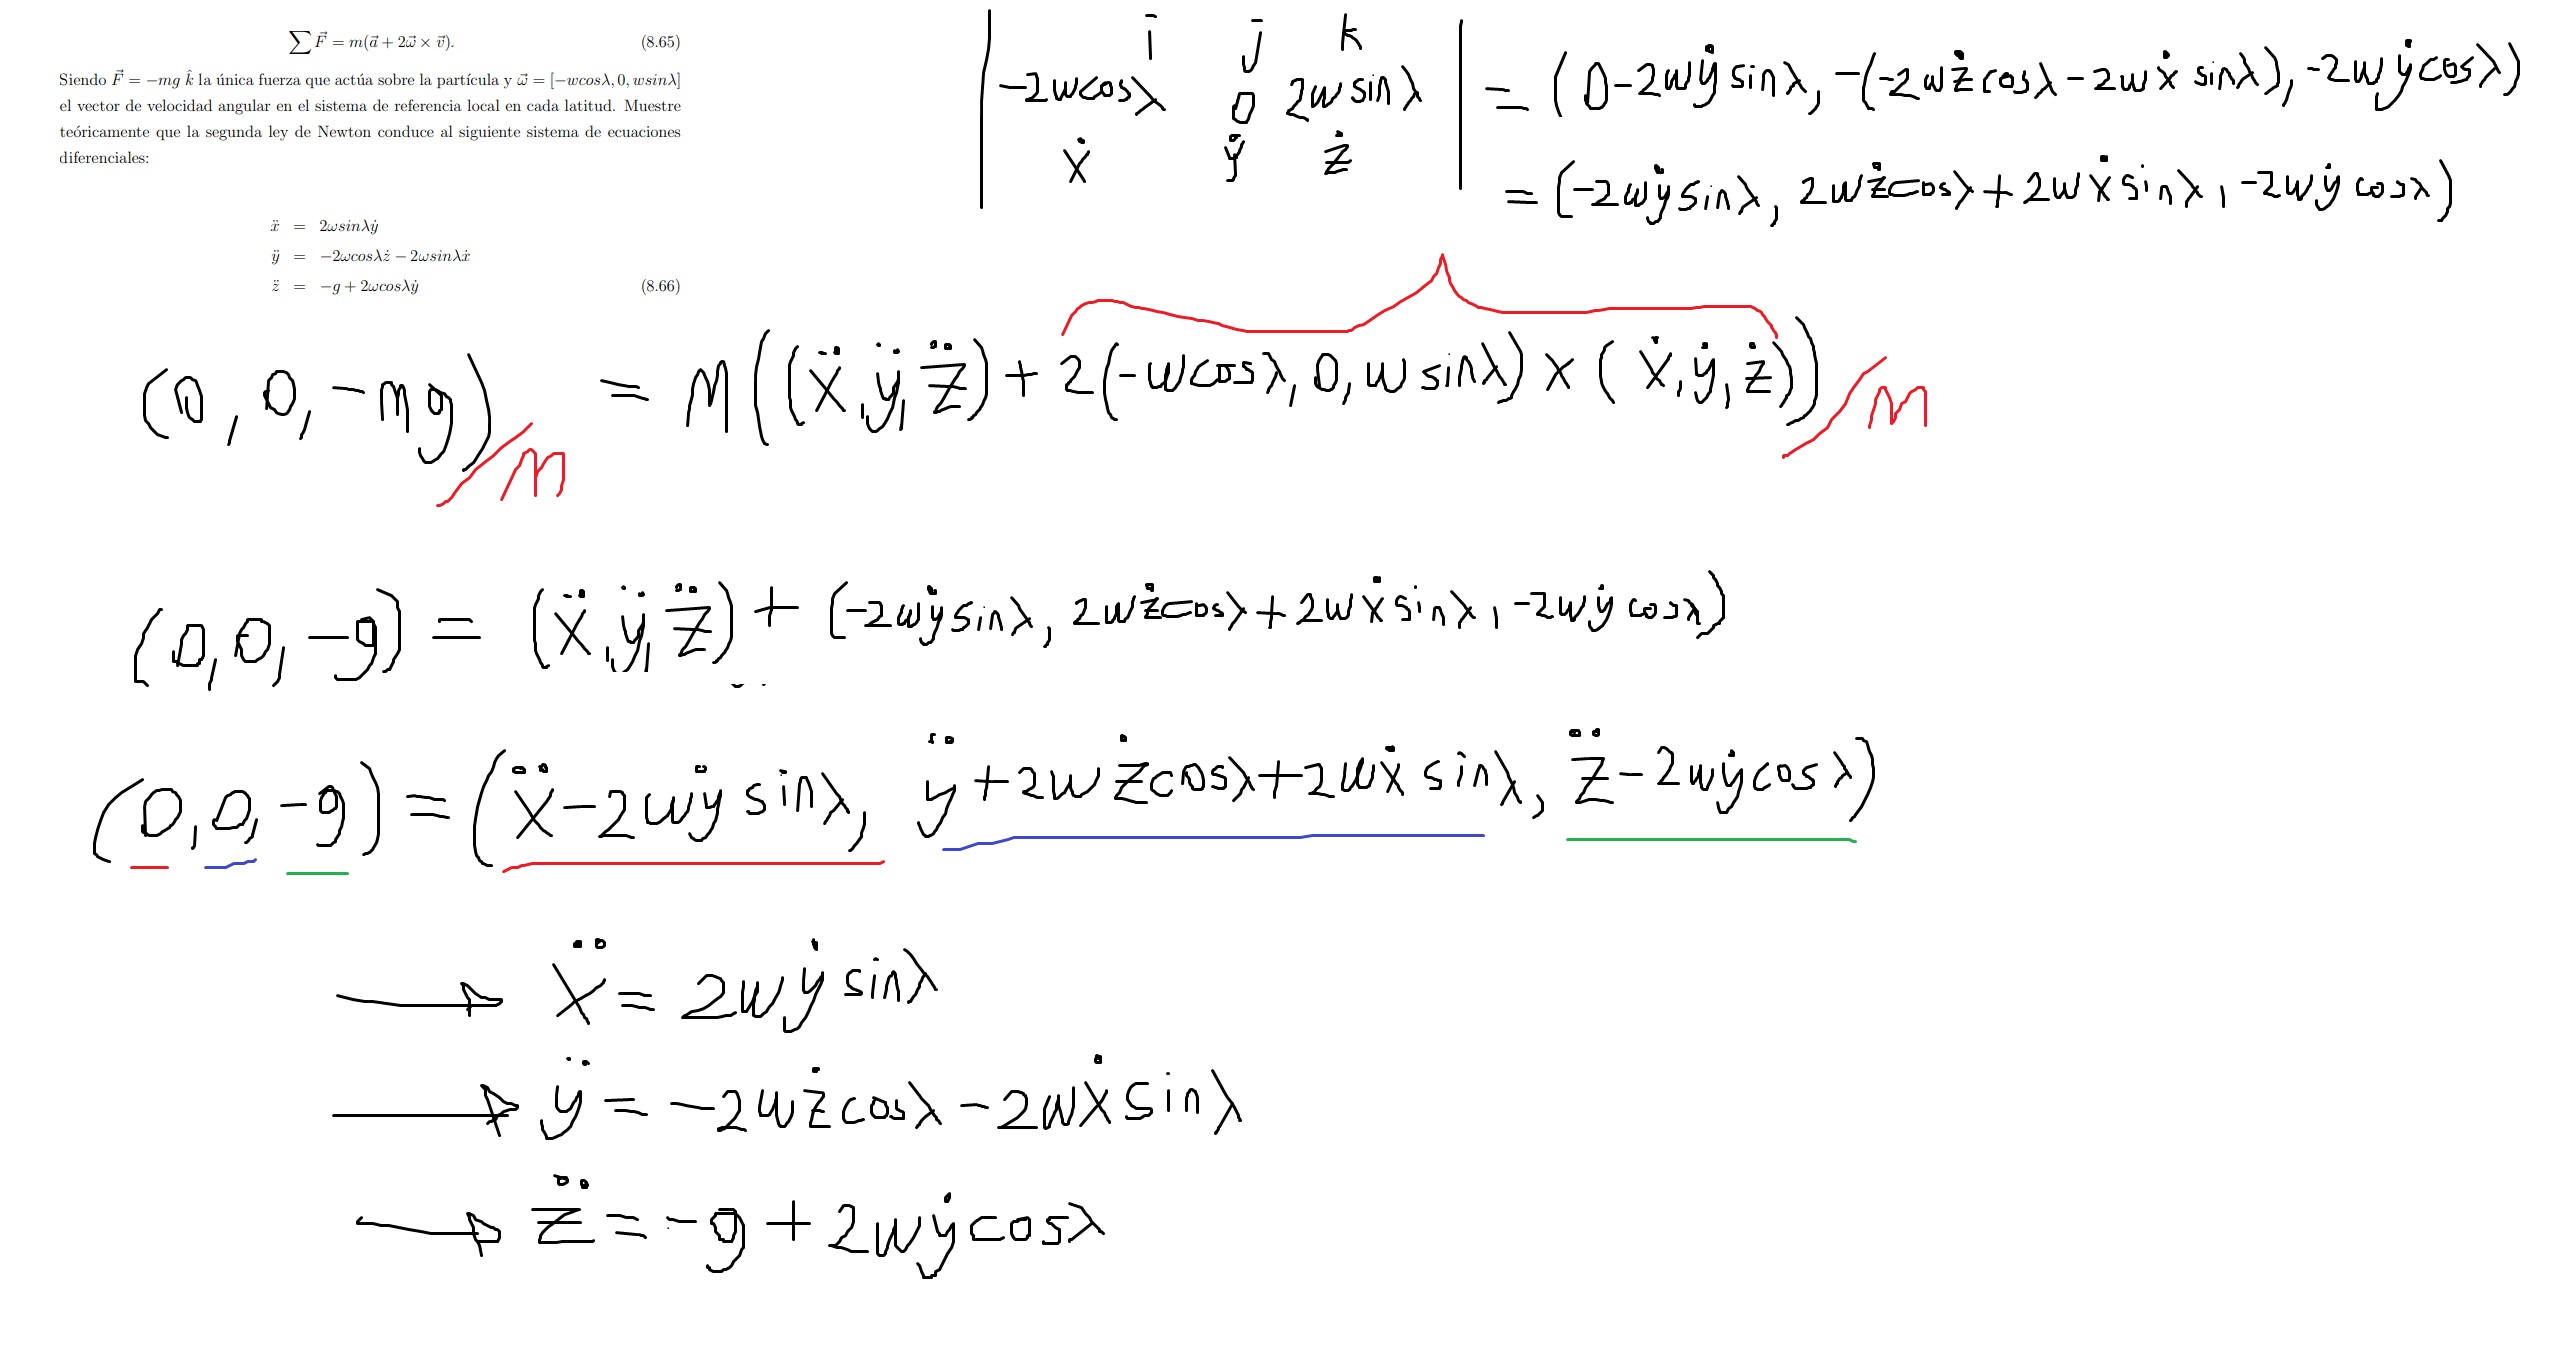 ∑F⃗ = m(a⃗ + 2ω⃗ × v⃗). (8.65)
Siendo F⃗ = −mg k̂ la única fuerza que actúa sobre la partícula y ω⃗ = [−wcosλ, 0, wsinλ]
el vector de velocidad angular en el sistema de referencia local en cada latitud. Muestre
teóricamente que la segunda ley de Newton conduce al siguiente sistema de ecuaciones
diferenciales:
ẍ = 2ωsinλẏ
ÿ = −2ωcosλż − 2ωsinλẋ
z̈ = −g + 2ωcosλẏ (8.66)
i j k
-2wcosλ 0 2wsinλ = (0-2wẏsinλ, -(-2wżcosλ-2wẋsinλ), -2wẏcosλ)
ẋ ẏ ż
= (-2wẏsinλ, 2wżcosλ+2wẋsinλ, -2wẏcosλ)
(0, 0, -mg)/m = m((ẍ, ÿ, z̈) + 2(-wcosλ, 0, wsinλ) × (ẋ, ẏ, ż))/m
(0, 0, -g) = (ẍ, ÿ, z̈) + (-2wẏsinλ, 2wżcosλ+2wẋsinλ, -2wẏcosλ)
(0, 0, -g) = (ẍ-2wẏsinλ, ÿ+2wżcosλ+2wẋsinλ, z̈-2wẏcosλ)
→ ẍ = 2wẏsinλ
→ ÿ = -2wżcosλ-2wẋsinλ
→ z̈ = -g+2wẏcosλ